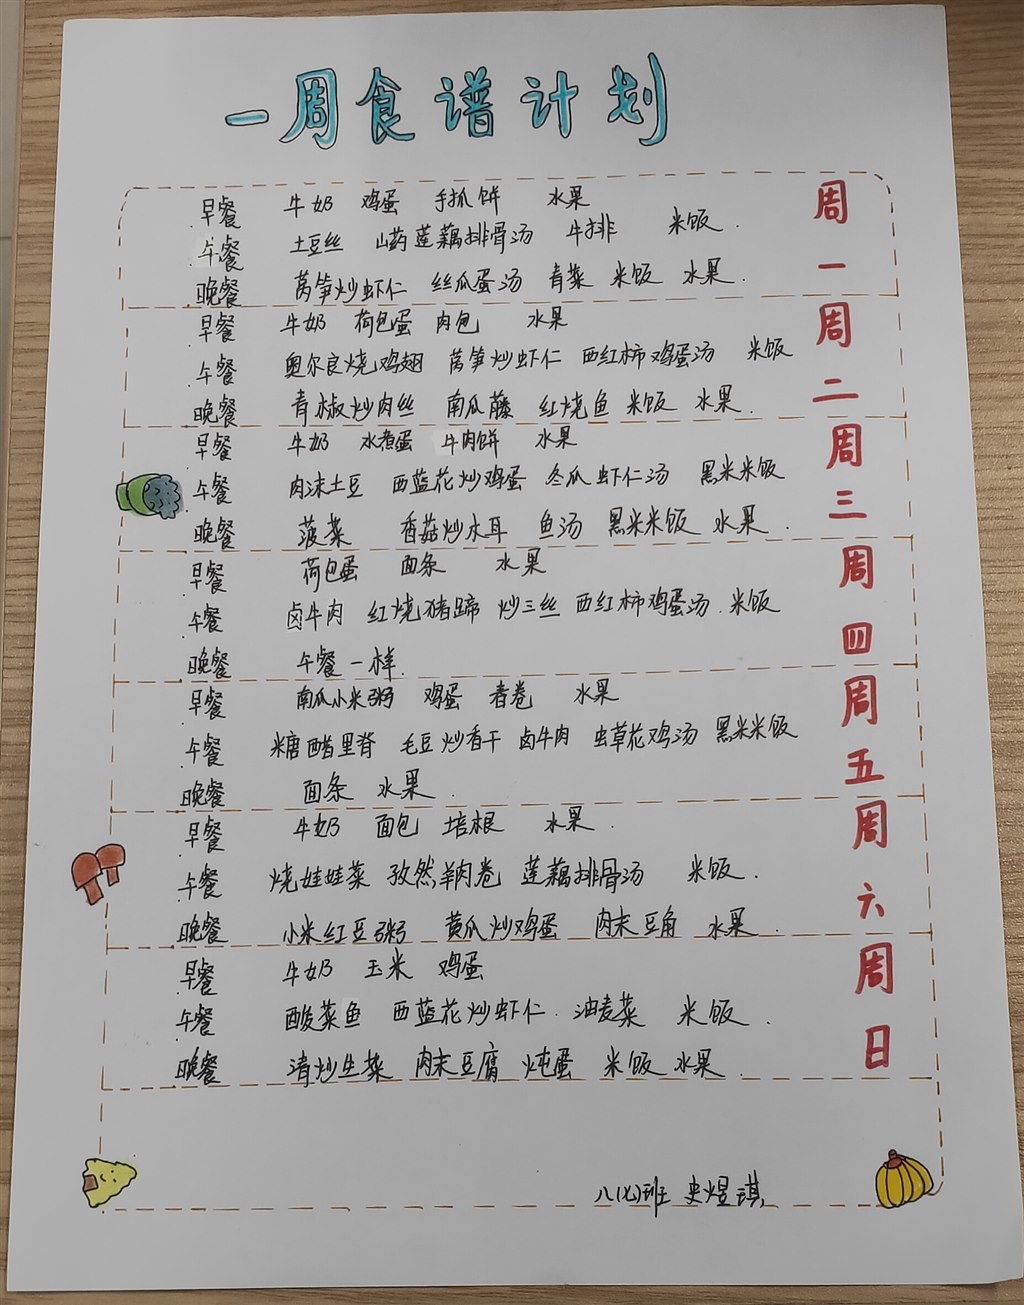 一周食谱计划
早餐 牛奶 鸡蛋 手抓饼 水果
午餐 土豆丝 山药莲藕排骨汤 牛排 米饭.
晚餐 莴笋炒虾仁 丝瓜蛋汤 青菜 米饭 水果.
周一
早餐 牛奶 荷包蛋 肉包 水果
午餐 奥尔良烧鸡翅 莴笋炒虾仁 西红柿鸡蛋汤 米饭
晚餐 青椒炒肉丝 南瓜藤 红烧鱼 米饭 水果.
周二
早餐 牛奶 水煮蛋 牛肉饼 水果
午餐 肉沫土豆 西蓝花炒鸡蛋 冬瓜虾仁汤 黑米米饭
晚餐 菠菜 香菇炒木耳 鱼汤 黑米米饭 水果.
周三
早餐 荷包蛋 面条 水果
午餐 卤牛肉 红烧猪蹄 炒三丝 西红柿鸡蛋汤. 米饭
晚餐 午餐一样.
周四
早餐 南瓜小米粥 鸡蛋 春卷 水果
午餐 糖醋里脊 毛豆炒香干 卤牛肉 虫草花鸡汤 黑米米饭
晚餐 面条 水果.
周五
早餐 牛奶 面包 培根 水果.
午餐 烧娃娃菜 孜然羊肉卷 莲藕排骨汤 米饭.
晚餐 小米红豆粥 黄瓜炒鸡蛋 肉末豆角 水果.
周六
早餐 牛奶 玉米 鸡蛋
午餐 酸菜鱼 西蓝花炒虾仁. 油麦菜 米饭.
晚餐 清炒生菜 肉末豆腐 炖蛋 米饭 水果.
周日
八(七)班 史煜琪